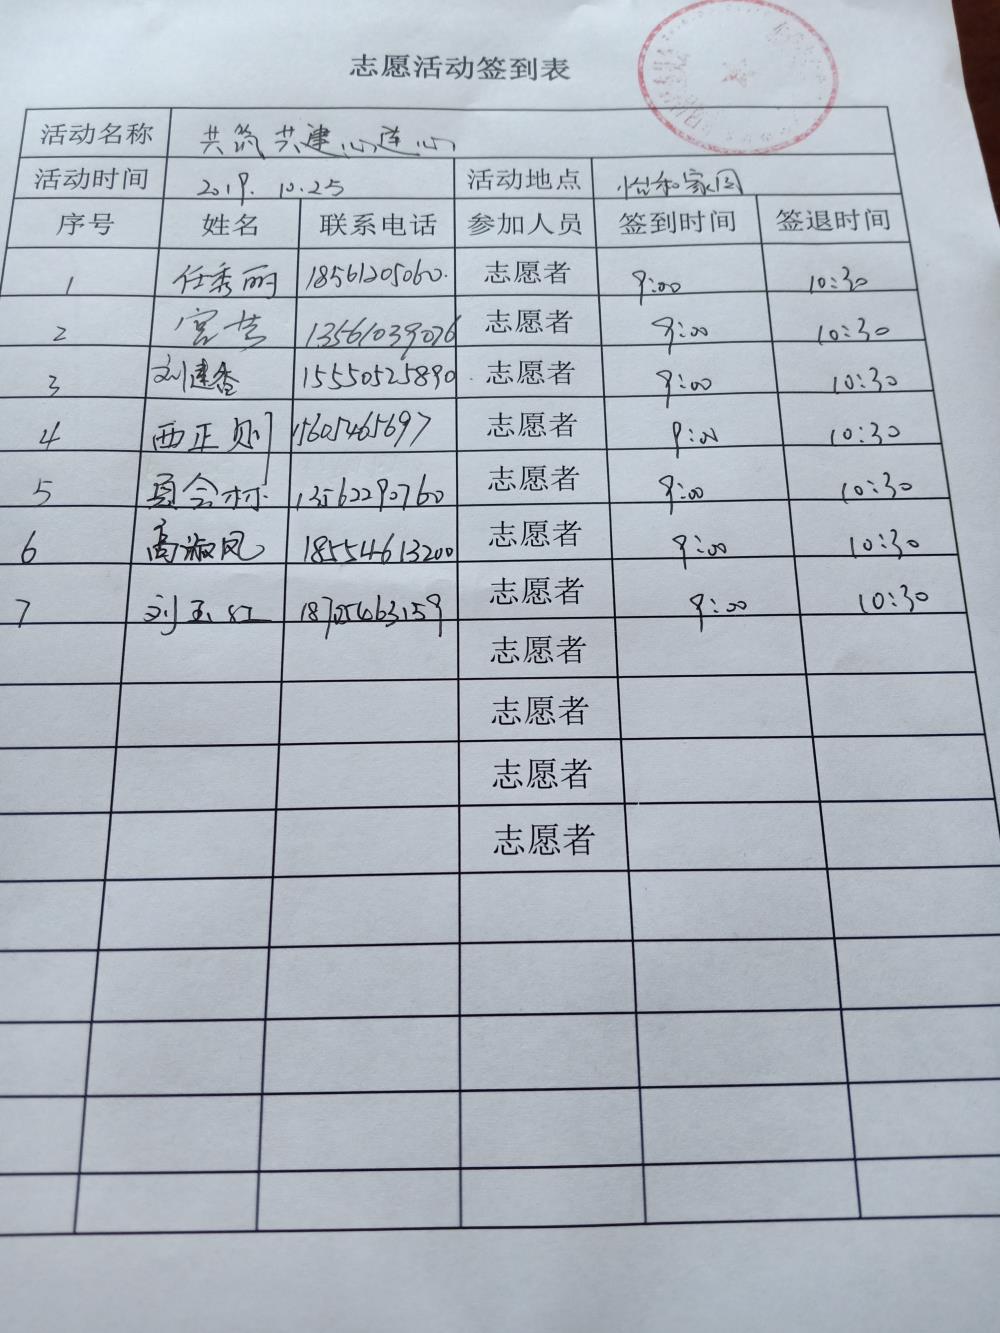 志愿活动签到表
活动名称 共筑共建心连心
活动时间 2019.10.25 活动地点 怡和家园
序号 姓名 联系电话 参加人员 签到时间 签退时间
1 任秀丽 18561205060 志愿者 9:00 10:30
2 宫芸 13561039076 志愿者 9:00 10:30
3 刘建香 15550525890 志愿者 9:00 10:30
4 西正则 15605465697 志愿者 9:00 10:30
5 夏令村 13562290760 志愿者 9:00 10:30
6 高淑凤 18554613200 志愿者 9:00 10:30
7 刘玉红 18705463159 志愿者 9:00 10:30
志愿者
志愿者
志愿者
志愿者